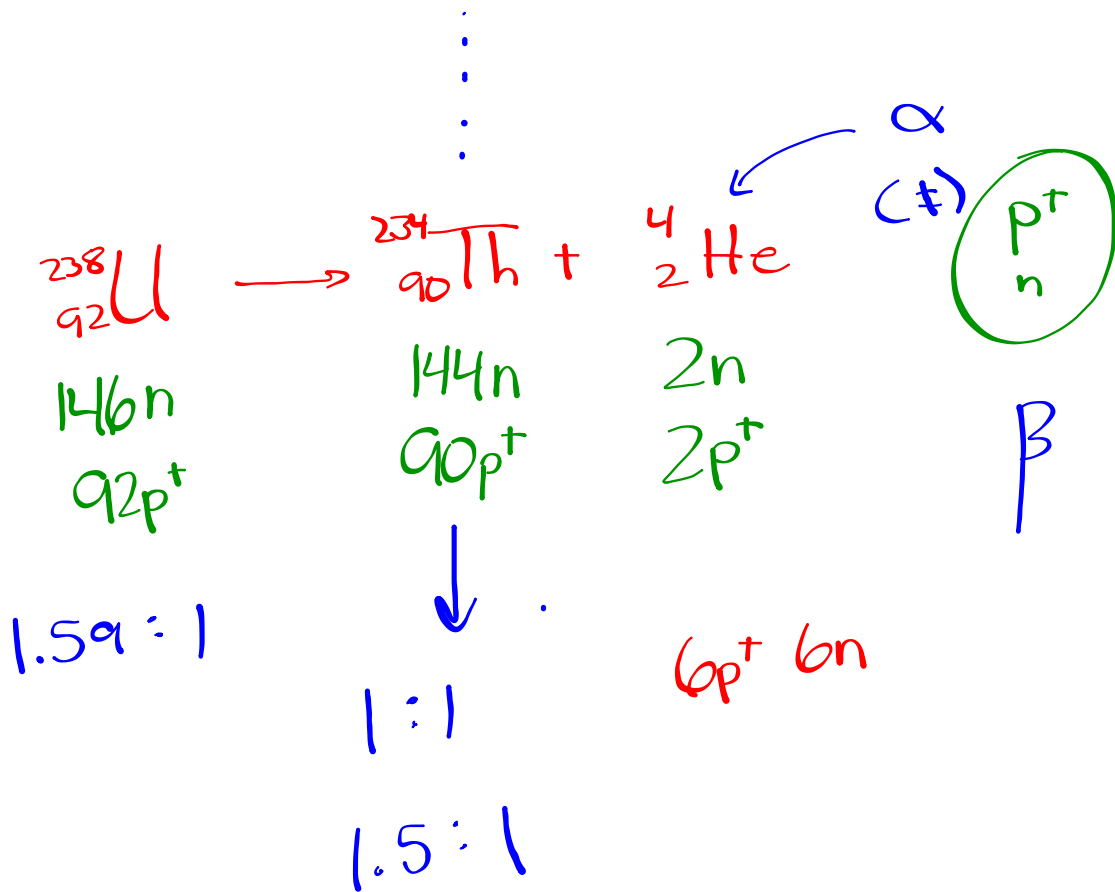 α
(+) p⁺
n
²³⁸₉₂U → ²³⁴₉₀Th + ⁴₂He
146n 144n 2n
92p⁺ 90p⁺ 2p⁺
β
1.59 : 1
6p⁺ 6n
1 : 1
1.5 : 1